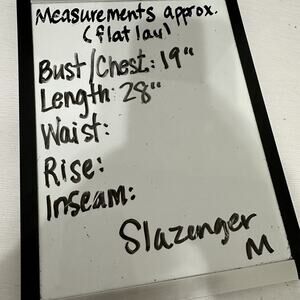 Measurements approx.
(flat lay)
Bust/Chest: 19"
Length: 28"
Waist:
Rise:
Inseam:
Slazenger
M